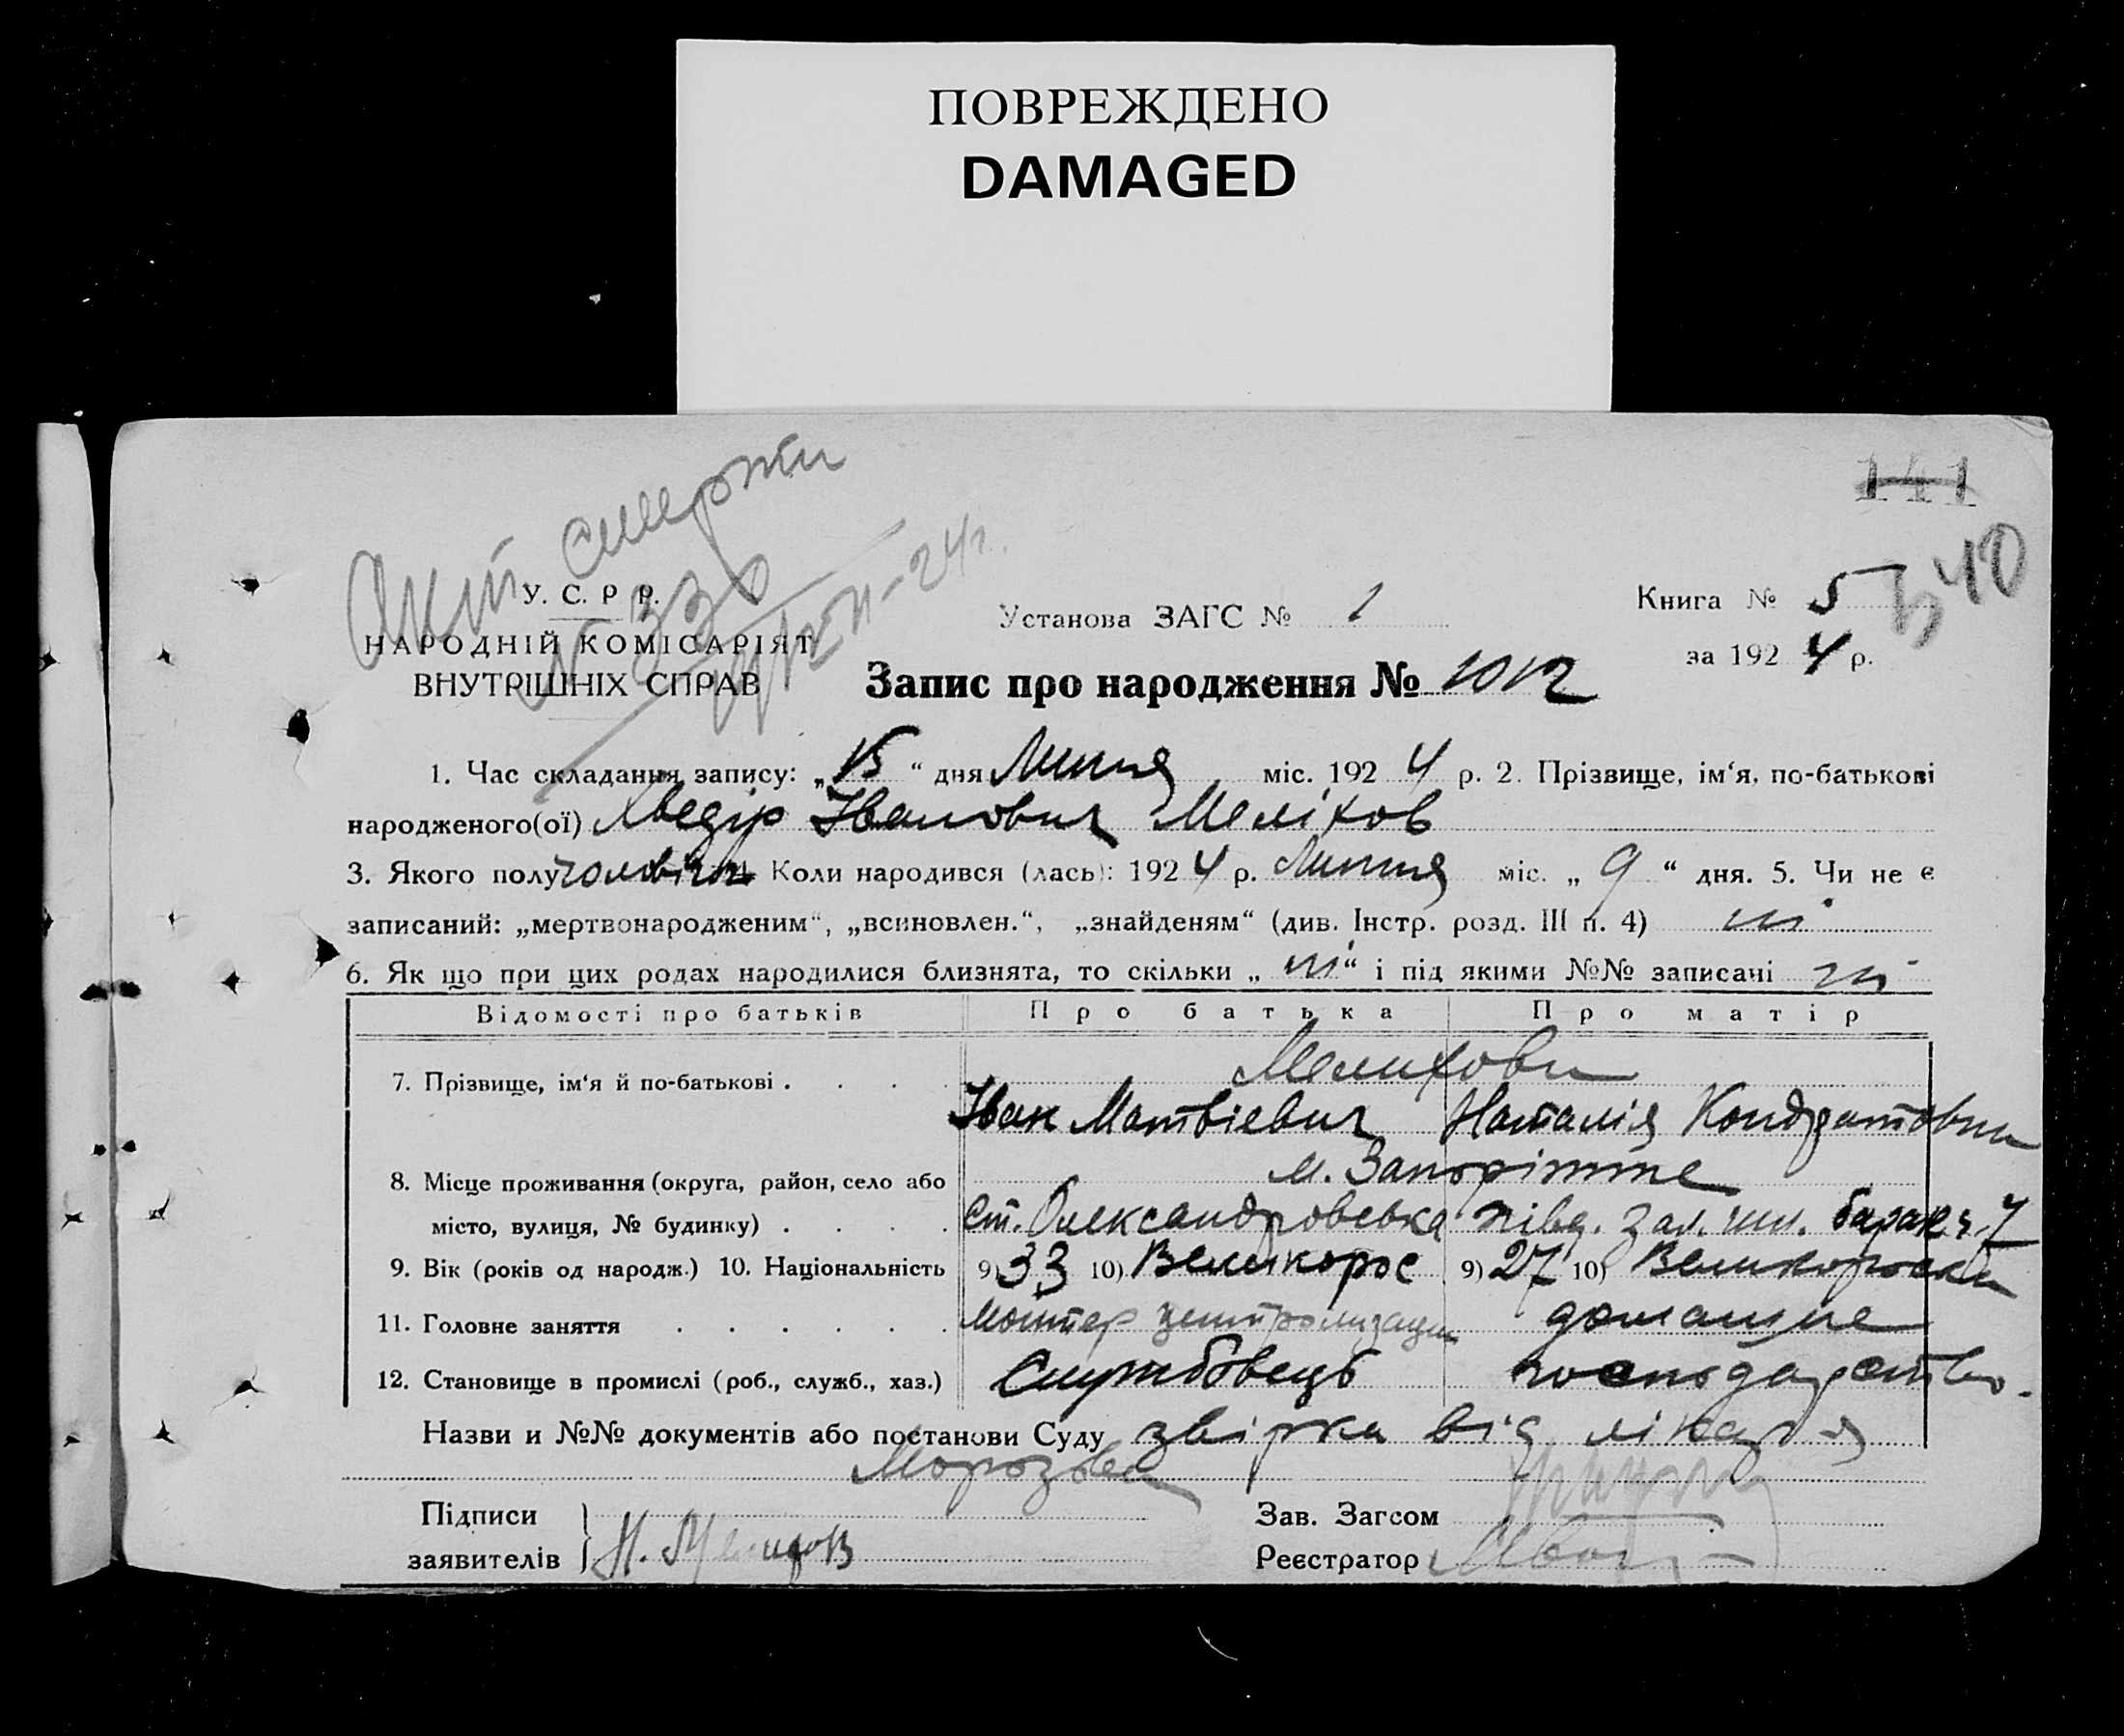 ПОВРЕЖДЕНО
DAMAGED
141
Акт смерти
N 330
24г.
40
У. С. Р Р.
НАРОДНІЙ КОМІСАРІЯТ
ВНУТРІШНІХ СПРАВ
Установа ЗАГС № 1
Книга № 5
за 1924 р.
Запис про народження № 1012
1. Час складання запису: „15“ дня Липня міс. 1924 р. 2. Прізвище, ім‘я, по-батькові
народженого(ої) Хведір Іванович Меліхов
3. Якого полу чоловічої 4. Коли народився (лась): 1924 р. Липня міс. „9“ дня. 5. Чи не є
записаний: „мертвонародженим“, „всиновлен.“, „знайденям“ (див. Інстр. розд. III п. 4) ні
6. Як що при цих родах народилися близнята, то скільки „ні“ і під якими №№ записані ні
Відомості про батьків Про батька Про матір
Мелихови
7. Прізвище, ім‘я й по-батькові . . . . Іван Матвієвич Наталія Кондратовна
м. Запоріжже
8. Місце проживання (округа, район, село або
місто, вулиця, № будинку) . . . . Ст. Олександровська півд. зал. шл. барак ч. 7
9. Вік (років од народж.) 10. Національність 9) 33 10) Великорос 9) 27 10) Великороска
11. Головне заняття . . . . . . Монтер централизации домашне
12. Становище в промислі (роб., служб., хаз.) Службовець господарство.
Назви и №№ документів або постанови Суду звірка від лікаря
Морозова
Підписи
заявителів
Зав. Загсом
Реєстратор